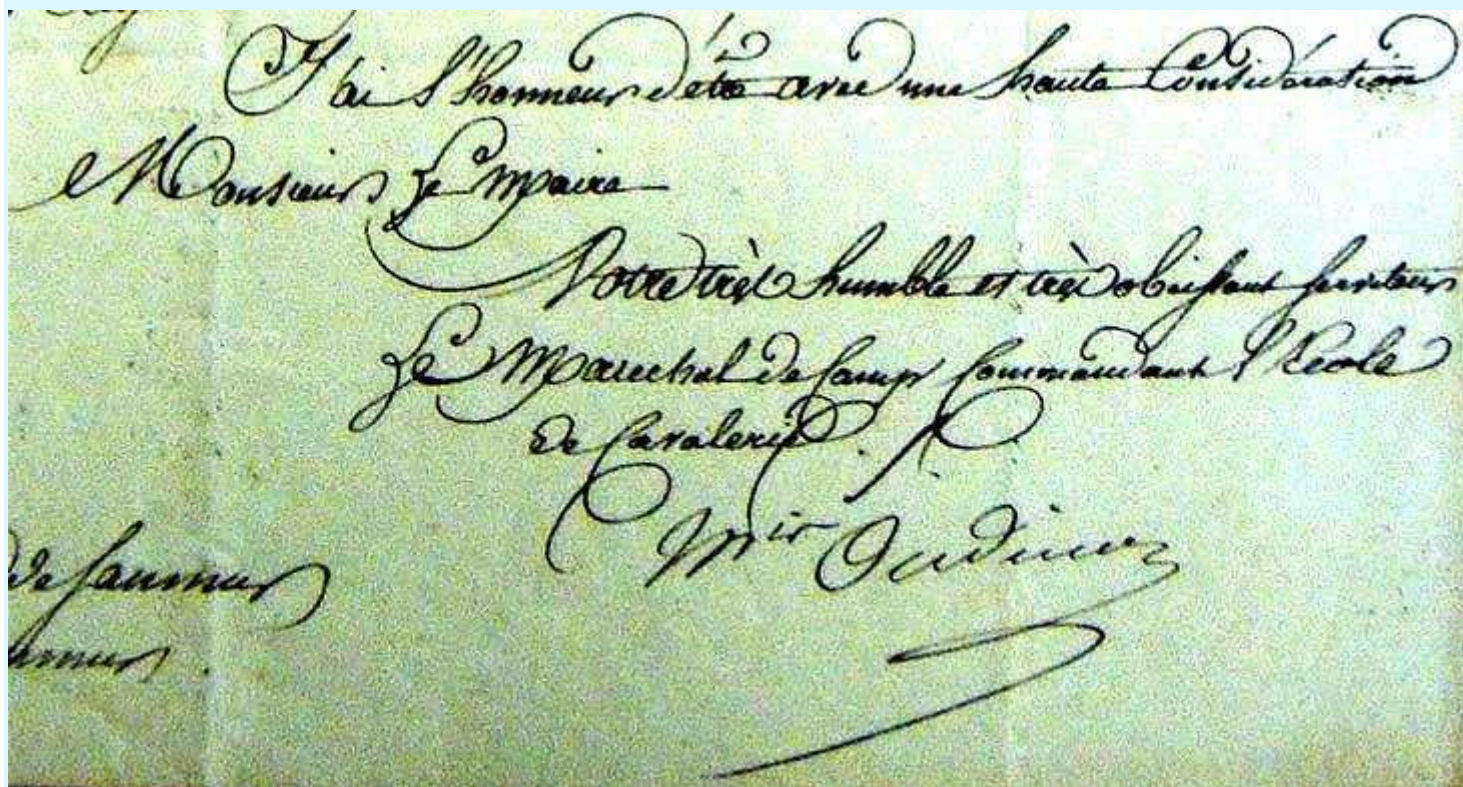 J'ai l'honneur d'être avec une haute Considération
Monsieur Le Maire
Votre très humble et très obeissant serviteur
Le Marechal de Camp Commandant l'Ecole
de Cavalerie.
Mis Oudinot
de Saumur